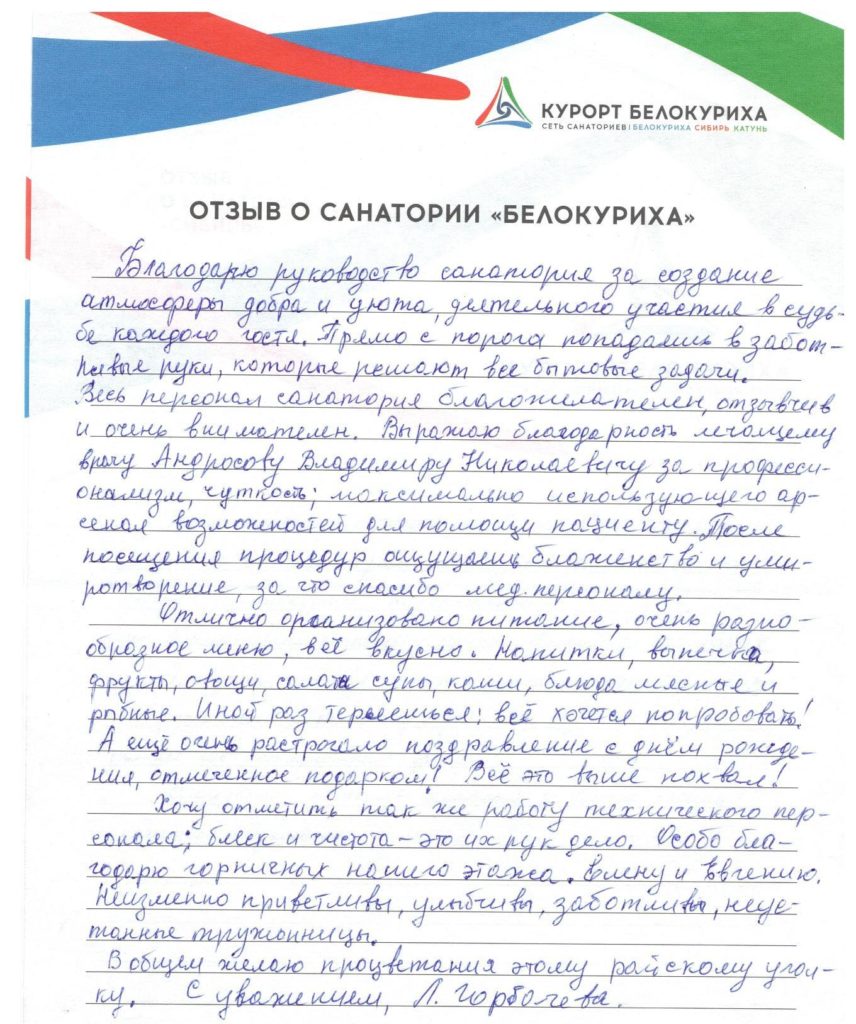 КУРОРТ БЕЛОКУРИХА
СЕТЬ САНАТОРИЕВ | БЕЛОКУРИХА СИБИРЬ КАТУНЬ
ОТЗЫВ О САНАТОРИИ «БЕЛОКУРИХА»
Благодарю руководство санатория за создание
атмосферы добра и уюта, деятельного участия в судь-
бе каждого гостя. Прямо с порога попадаешь в забот-
ливые руки, которые решают все бытовые задачи.
Весь персонал санатория благожелателен, отзывчив
и очень внимателен. Выражаю благодарность лечащему
врачу Андросову Владимиру Николаевичу за професси-
онализм, чуткость; максимально использующего ар-
сенал возможностей для помощи пациенту. После
посещения процедур ощущаешь блаженство и уми-
ротворение, за что спасибо мед. персоналу.
Отлично организовано питание, очень разно-
образное меню, всё вкусно. Напитки, выпечка,
фрукты, овощи, салаты супы, каши, блюда мясные и
рыбные. Иной раз теряешься: всё хочется попробовать!
А ещё очень растрогало поздравление с днём рожде-
ния, отмеченное подарком! Всё это выше похвал!
Хочу отметить так же работу технического пер-
сонала; блеск и чистота – это их рук дело. Особо бла-
годарю горничных нашего этажа. Елену и Евгению.
Неизменно приветливы, улыбчивы, заботливы, неус-
танные труженицы.
В общем желаю процветания этому райскому угол-
ку. С уважением, Л. Горбачева.